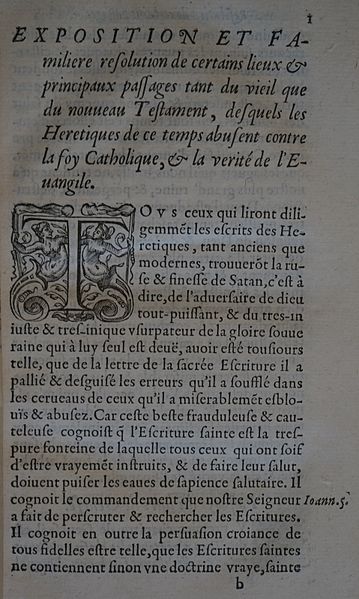 1
EXPOSITION ET FA-
miliere resolution de certains lieux &
principaux paſſages tant du vieil que
du nouueau Teſtament, deſquels les
Heretiques de ce temps abuſent contre
la foy Catholique, & la verité de l'E-
uangile.
TOVS ceux qui liront dili-
gemmēt les eſcrits des He-
retiques, tant anciens que
modernes, trouuerōt la ru-
ſe & fineſſe de Satan, c'eſt à
dire, de l'aduerſaire de dieu
tout-puiſſant, & du tres-in
iuſte & treſ-inique vſurpateur de la gloire ſouue
raine qui à luy ſeul eſt deuë, auoir eſté touſiours
telle, que de la lettre de la ſacrée Eſcriture il a
pallié & deſguiſé les erreurs qu'il a ſoufflé dans
les cerueaus de ceux qu'il a miſerablemēt eſblo-
uïs & abuſez. Car ceſte beſte frauduleuſe & cau-
teleuſe cognoiſt q̃ l'Eſcriture ſainte eſt la treſ-
pure fonteine de laquelle tous ceux qui ont ſoif
d'eſtre vrayemēt inſtruits, & de faire leur ſalut,
doiuent puiſer les eaues de ſapience ſalutaire. Il
cognoit le commandement que noſtre Seigneur Ioann. 5.
a fait de perſcruter & rechercher les Eſcritures.
Il cognoit en outre la perſuaſion croiance de
tous fidelles eſtre telle, que les Eſcritures ſaintes
ne contiennent ſinon vne doctrine vraye, ſainte
b